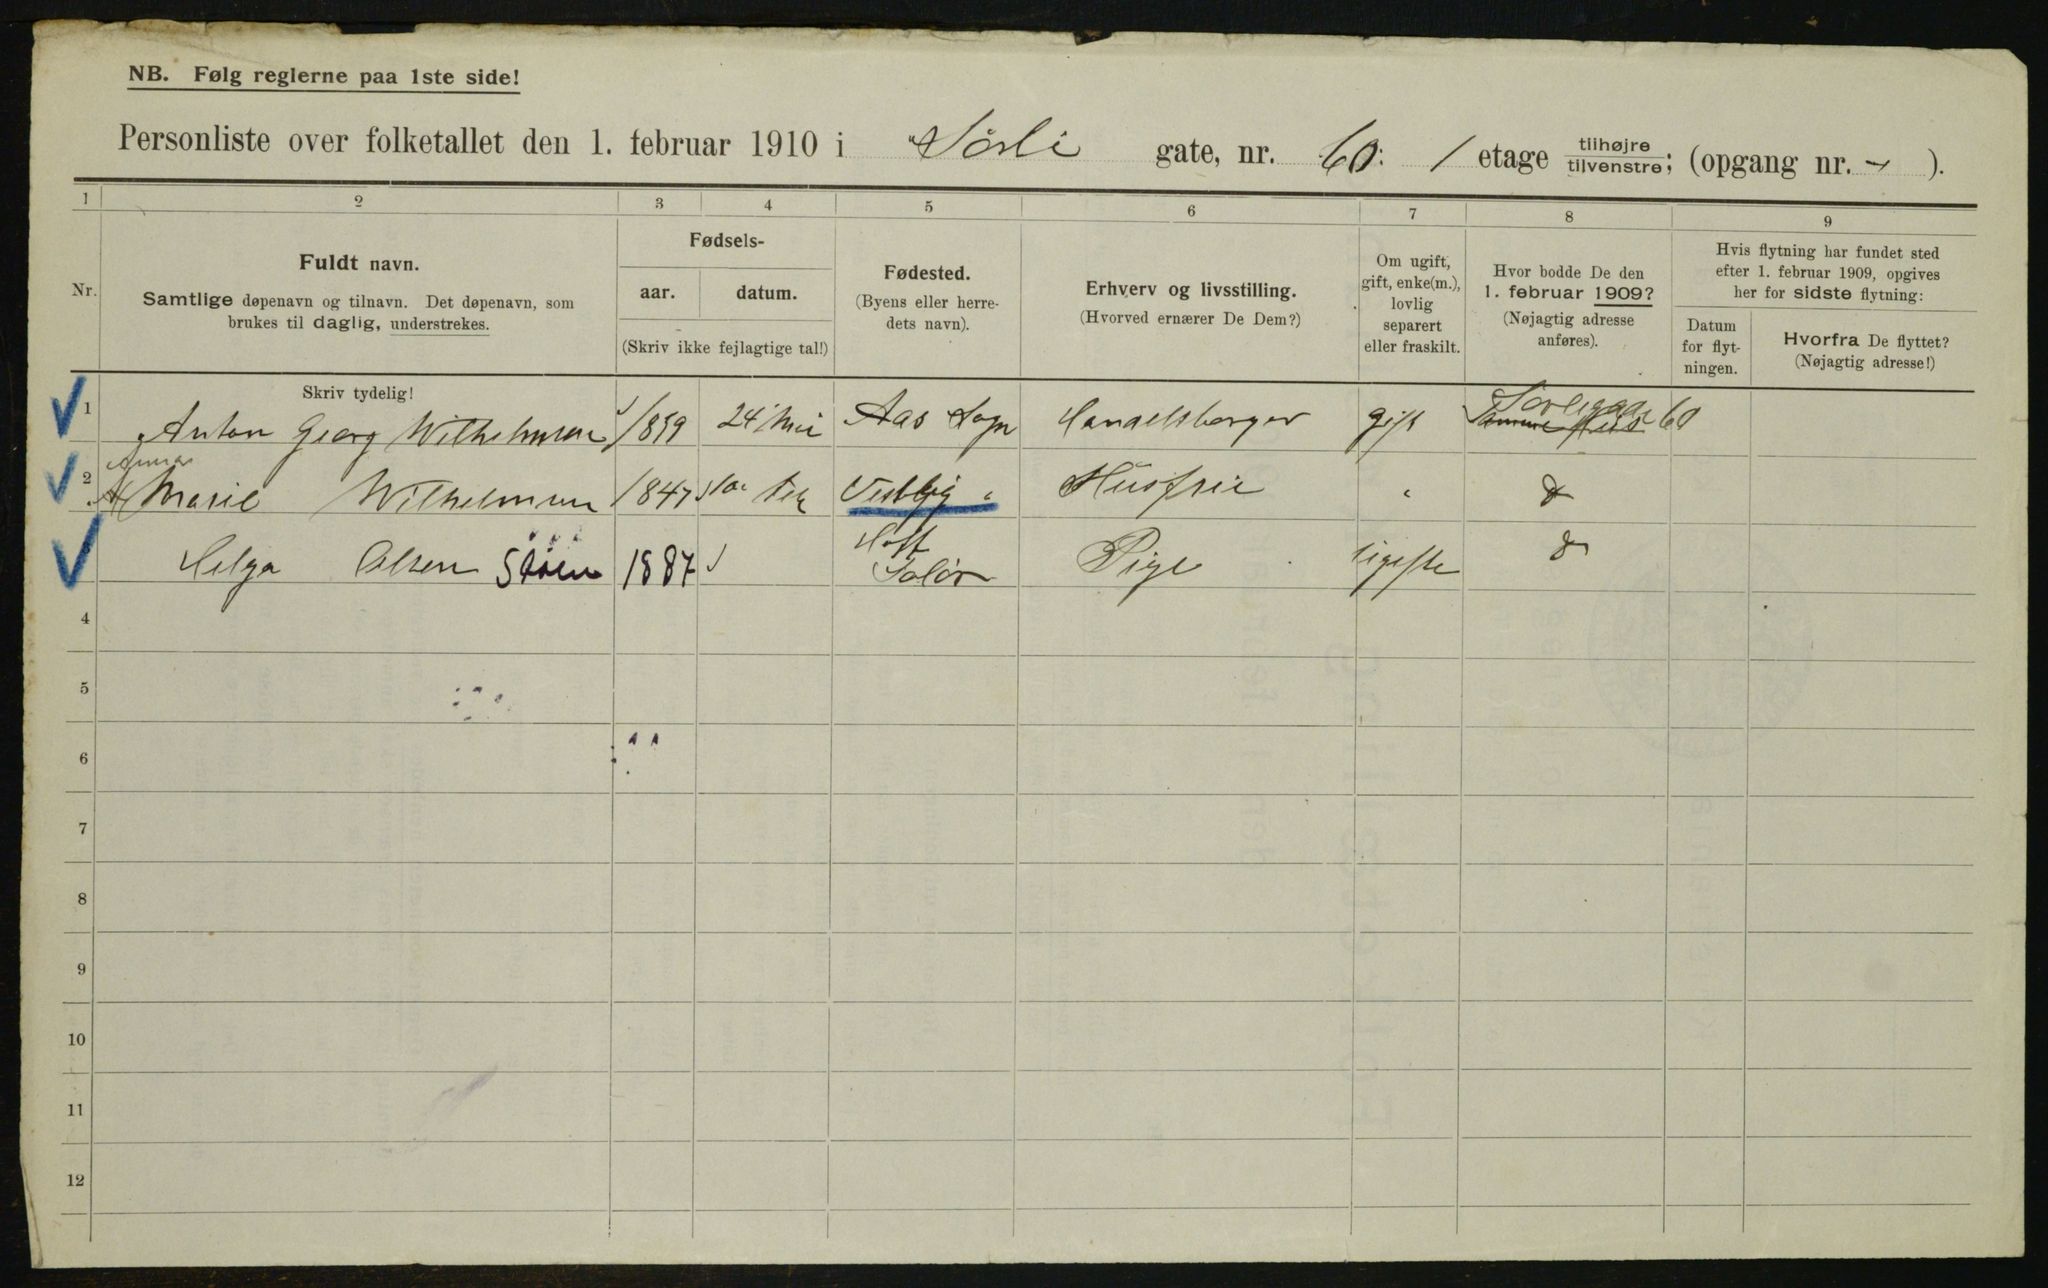 NB. Følg reglerne paa 1ste side!
Personliste over folketallet den 1. februar 1910 i Sörli gate, nr. 60: 1 etage tilhøjre/tilvenstre; (opgang nr. - ).
1 2 3 4 5 6 7 8 9
Nr.
Fuldt navn.
Samtlige døpenavn og tilnavn. Det døpenavn, som
brukes til daglig, understrekes.
Skriv tydelig!
Fødsels-
aar. datum.
(Skriv ikke fejlagtige tal!)
Fødested.
(Byens eller herre-
dets navn).
Erhverv og livsstilling.
(Hvorved ernærer De Dem?)
Om ugift,
gift, enke(m.),
lovlig
separert
eller fraskilt.
Hvor bodde De den
1. februar 1909?
(Nøjagtig adresse
anføres).
Hvis flytning har fundet sted
efter 1. februar 1909, opgives
her for sidste flytning:
Datum
for flyt-
ningen.
Hvorfra De flyttet?
(Nøjagtig adresse!)
Sorligade
1 Anton Georg Wilhelmsen 1859 24 Mai Aas Sogn Handelsborger gift Samme Hus 60
Anna
2 Marie Wilhelmsen 1847 Vestby " Husfrue " do
Hoff
3 Helga Olsen Støen 1887 Solör Pige ugifte do
4
5
6
7
8
9
10
11
12